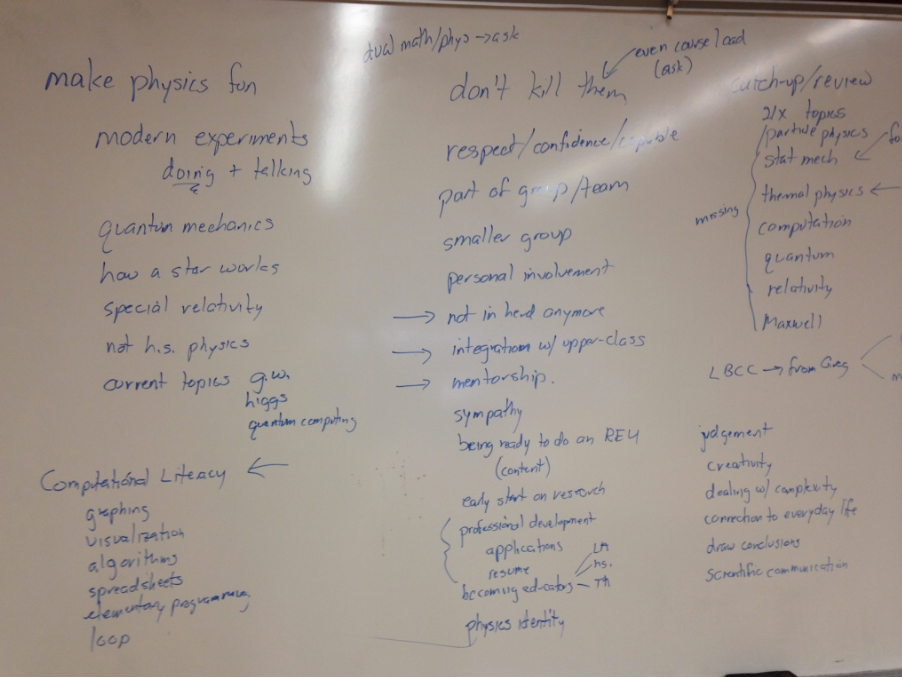 dual math/phys → ask
make physics fun
modern experiments
doing + talking
quantum mechanics
how a star works
special relativity
not h.s. physics
current topics g.w.
higgs
quantum computing
Computational Literacy ←
graphing
visualization
algorithms
spreadsheets
elementary programming
loop
even course load
(ask)
don't kill them
respect/confidence/capable
part of group/team
smaller group
personal involvement
→ not in herd anymore
→ integration w/ upper-class
→ mentorship.
sympathy
being ready to do an REU
(content)
early start on research
professional development
applications
resume
becoming educators
LA
hs.
physics identity
catch-up/review
21x topics
particle physics
stat mech
thermal physics ←
missing
computation
quantum
relativity
Maxwell
LBCC → from Greg
judgement
creativity
dealing w/ complexity
connection to everyday life
draw conclusions
scientific communication